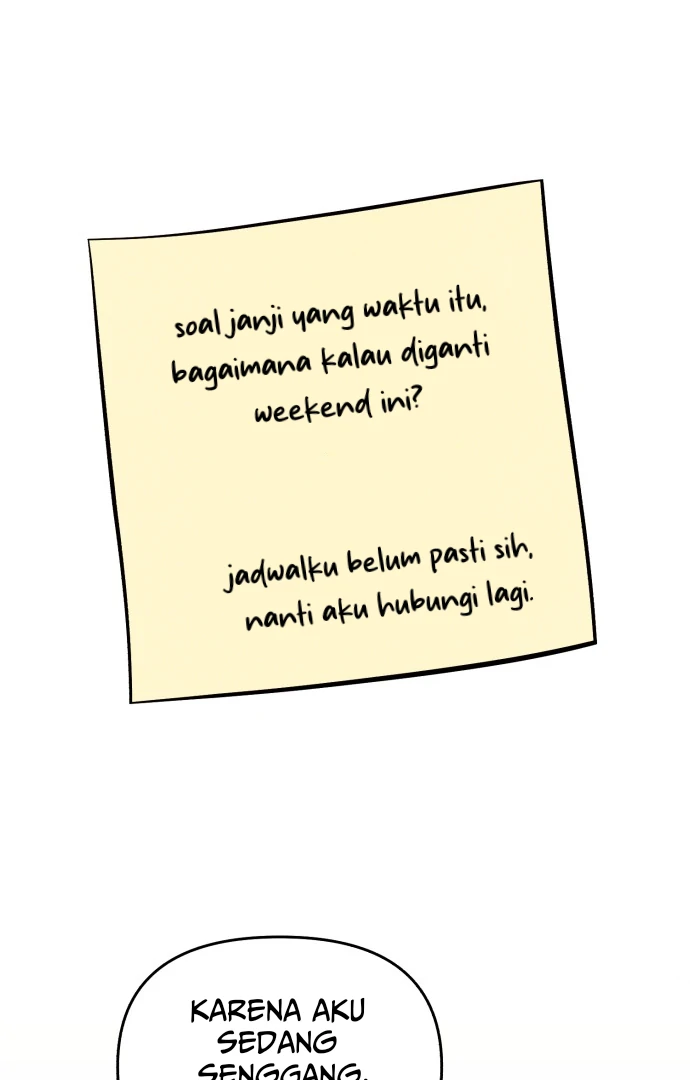 soal janji yang waktu itu,
bagaimana kalau diganti
weekend ini?
jadwalku belum pasti sih,
nanti aku hubungi lagi.
KARENA AKU
SEDANG
SENGGANG,